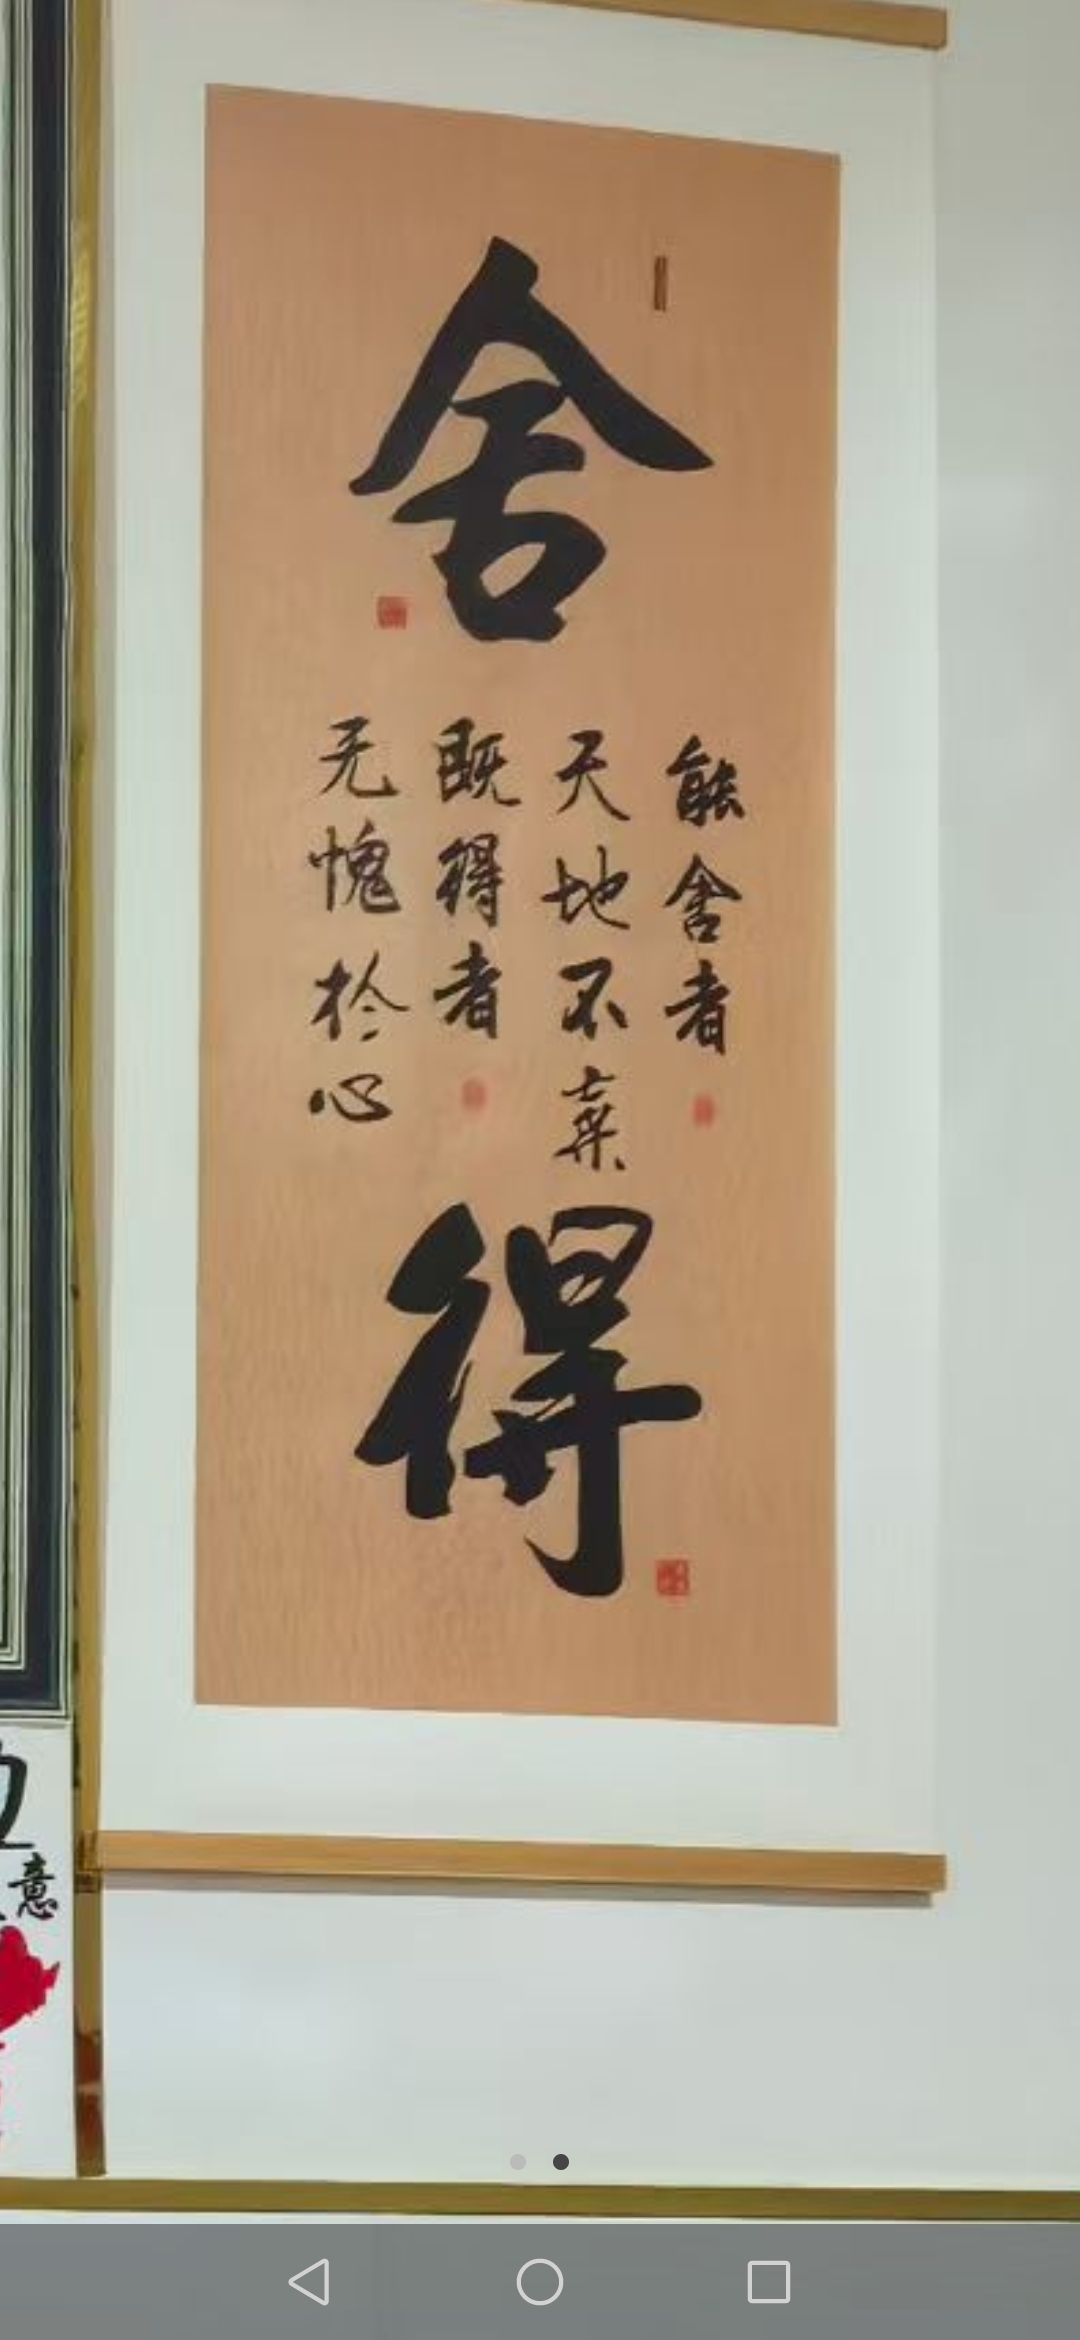 舍
能舍者
天地不棄
既得者
无愧於心
得
意